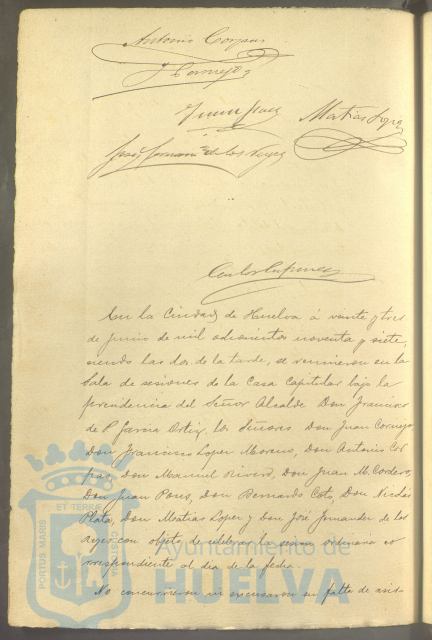 Antonio Corpas
J. Cornejo
Matias Lopez
José Fernandez de los Reyes
En la Ciudad de Huelva á veinte y tres
de Junio de mil ochocientos noventa y siete,
siendo las dos de la tarde, se reunieron en la
Sala de sesiones de la Casa Capitular bajo la
presidencia del Señor Alcalde Don Francisco
de P. García Ortiz, los Señores Don Juan Cornejo
Don Francisco Lopez Moreno, Don Antonio Cor
pas, Don Manuel Rivero, Don Juan M. Cordero,
Don Juan Pons, Don Bernardo Coto, Don Nicolas
Plata, Don Matias Lopez y Don José Fernandez de los
Reyes con objeto de celebrar la sesion ordinaria co
rrespondiente al dia de la fecha.
No concurrieron ni escusaron su falta de asis-
PORTUS MARIS ET TERRÆ CUSTODIA
Ayuntamiento de
HUELVA